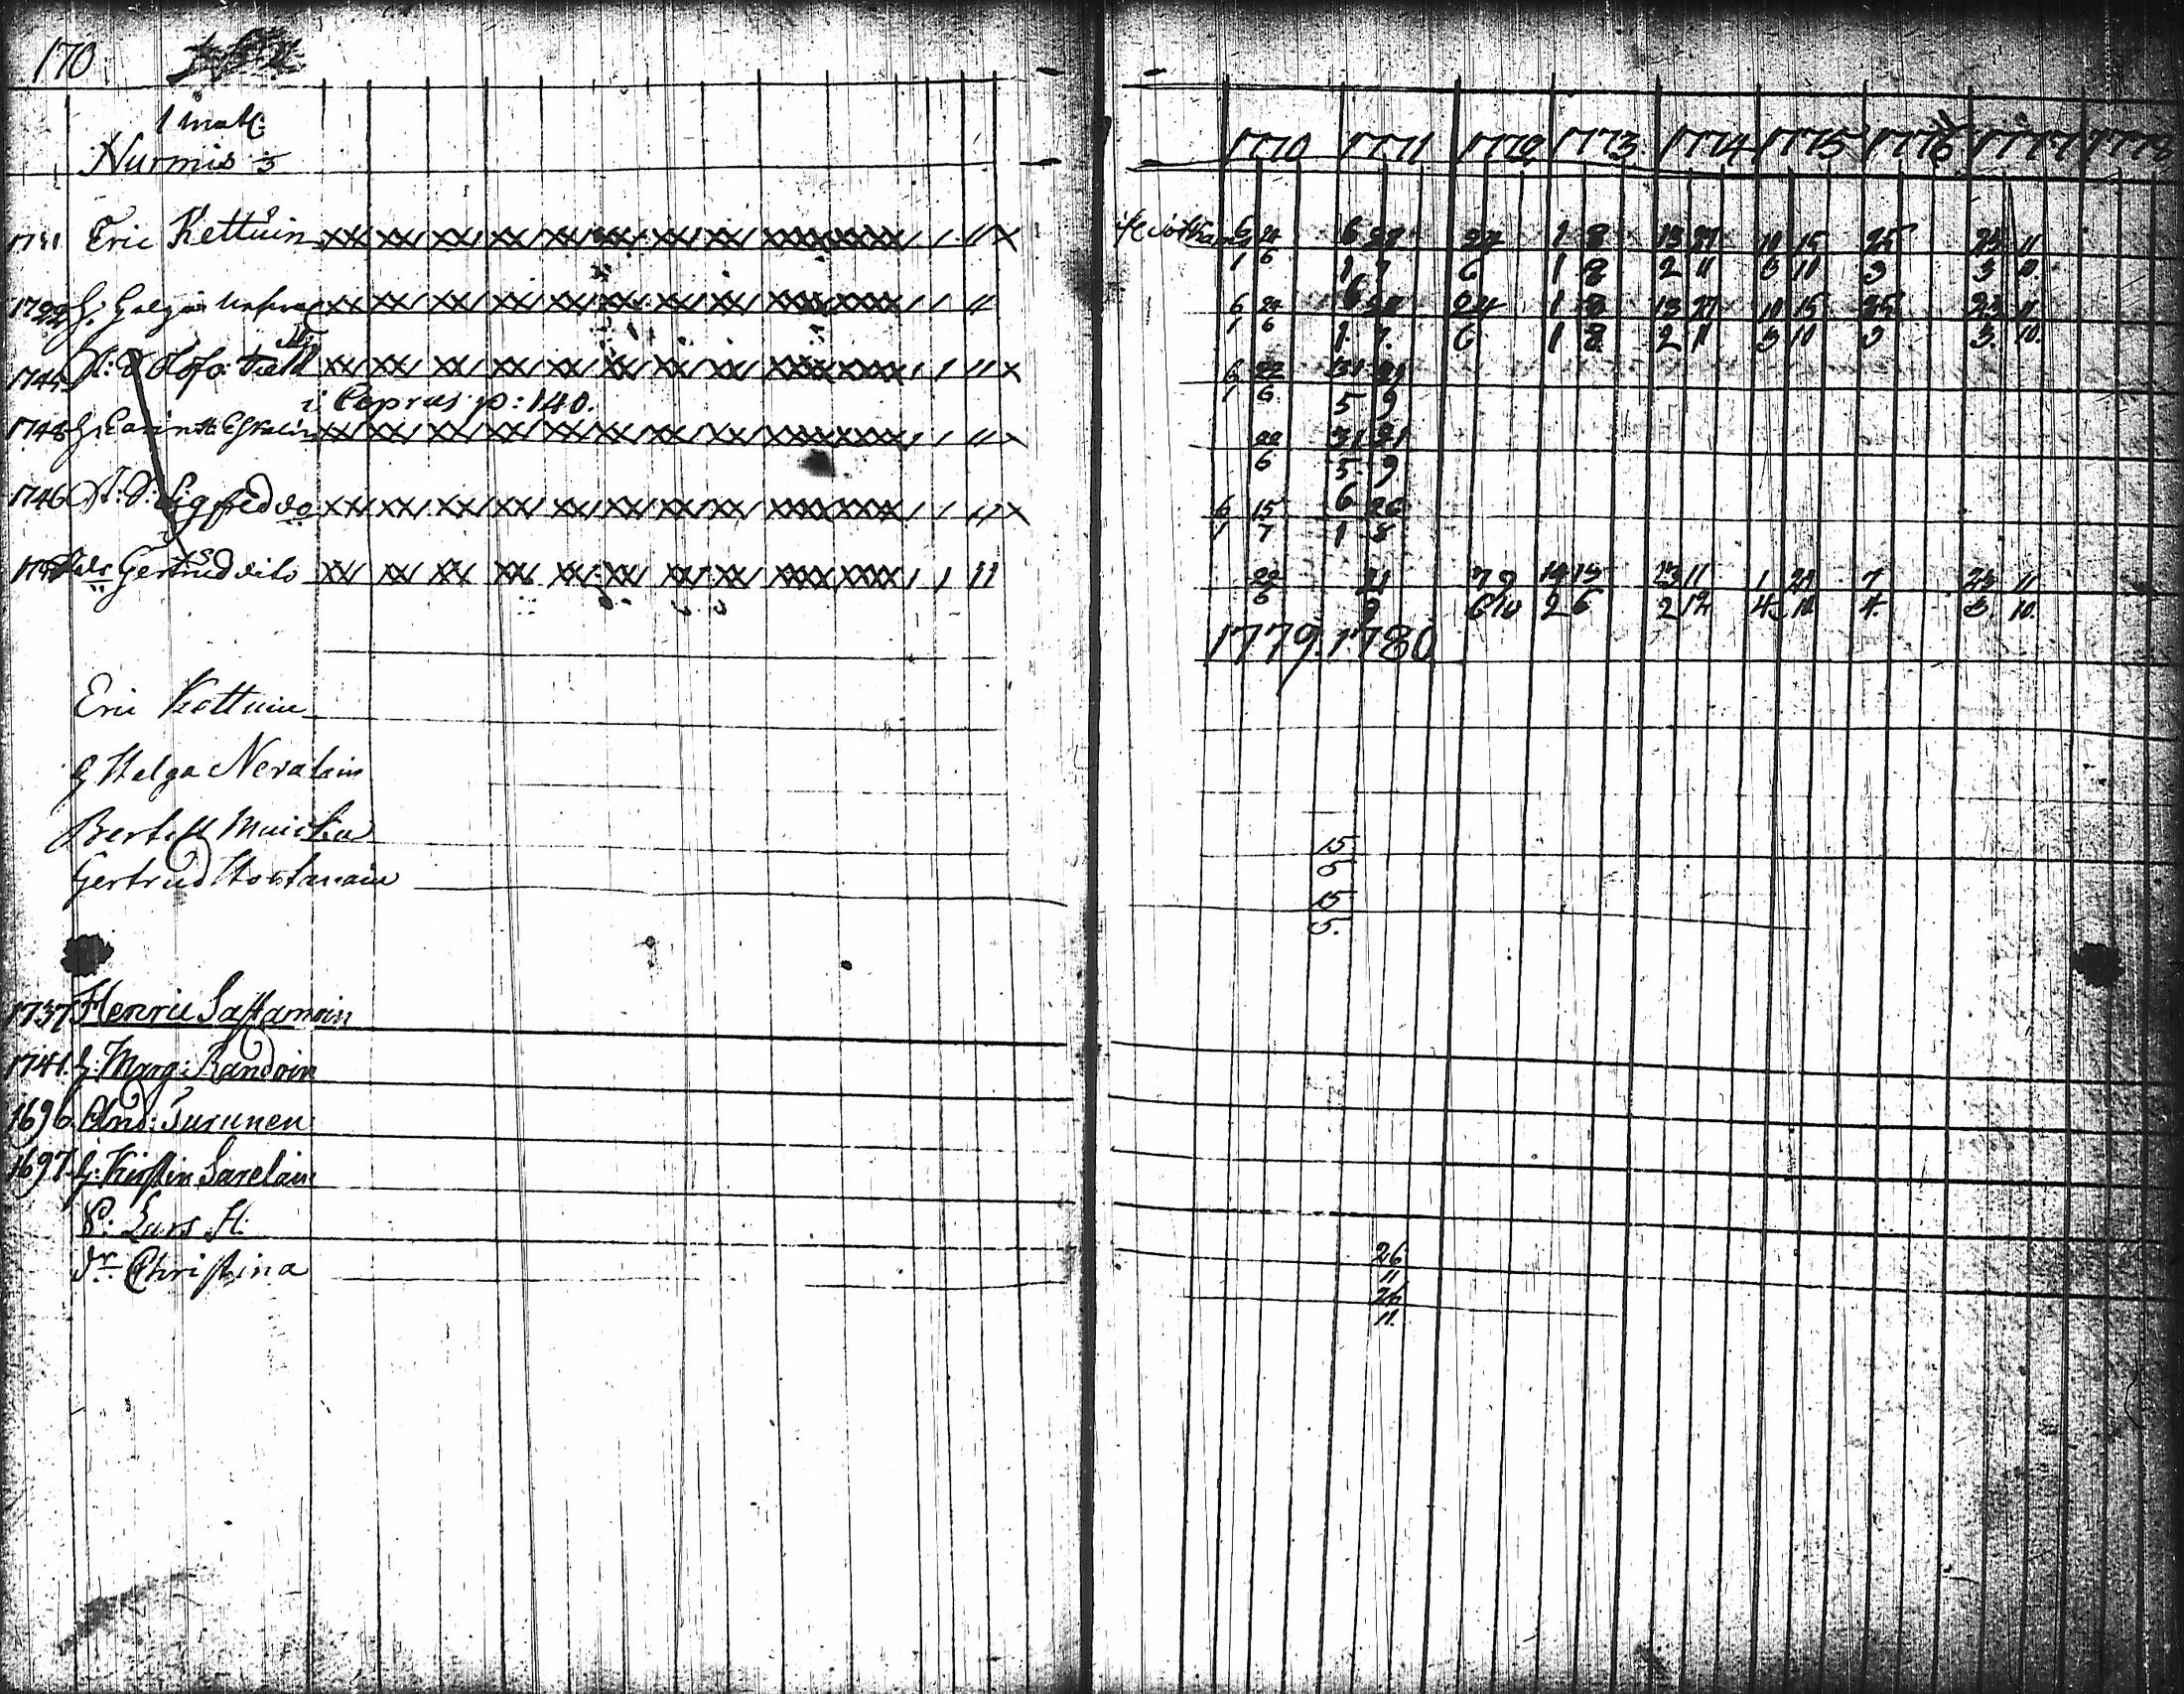 170
1 matl:
Nurmis 3
1770 1771 1772 1773 1774 1775 1776 1777 1778
Eric Kettuin 6 24 6 28 24 1 8 13 27 10 15 25 23 11
1 6 1 7 6 1 8 2 11 3 11 3 3 10.
1722 h. Helga 6 24 6 28 24 1 8 13 27 10 15 25 23 11
1 6 1. 7. 6 1 8 2 11 3 11 3 3. 10.
1744 Olofo 6 22 31 21
1 6 5 9
i Coprus p: 140.
1748 h. Carin 22 31 21
6 5 9
1746 Sigfred do 6 15 6 26
1 7 1 8
Gertrud dito 22 21 7 9 14 15 13 11 1 29 7 23 11
6 9 6 10 2 6 2 12 4 10 4. 3. 10.
1779. 1780
Eric Kettuin
h Helga Nevalain
Bertill Muicku 15
5
Gertrud 15
5.
1737 Henric Sastamoin
1741. h: Marg: Randoin
1696. And: Turunen
1697. h: Kirstin Sarelain
S: Lars H. 26
11
dr Christina 26
11.